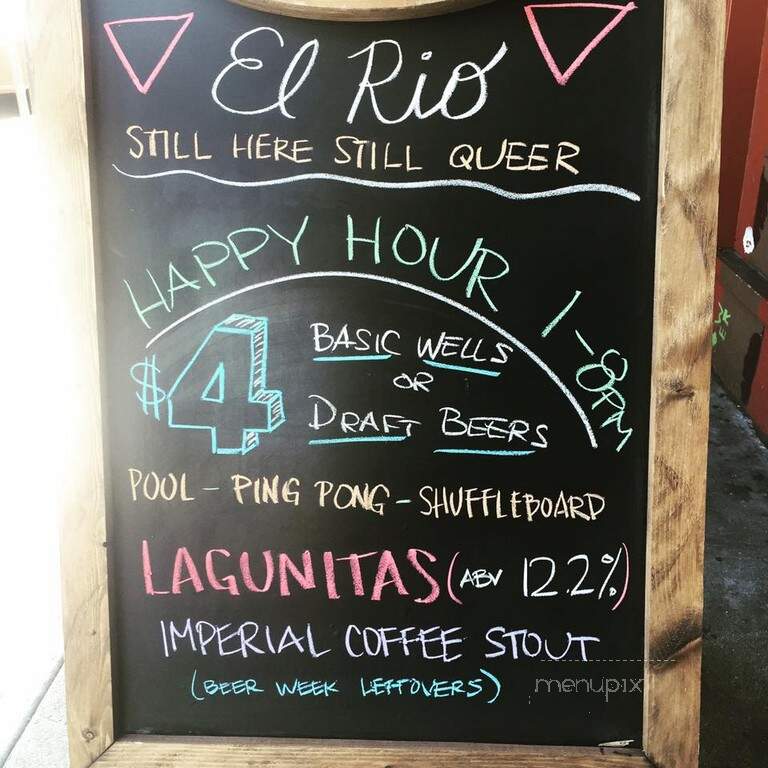 El Rio
STILL HERE STILL QUEER
HAPPY HOUR 1-8PM
$4 BASIC WELLS
OR
DRAFT BEERS
POOL - PING PONG - SHUFFLEBOARD
LAGUNITAS (ABV 12.2%)
IMPERIAL COFFEE STOUT
(BEER WEEK LEFTOVERS)
menupix